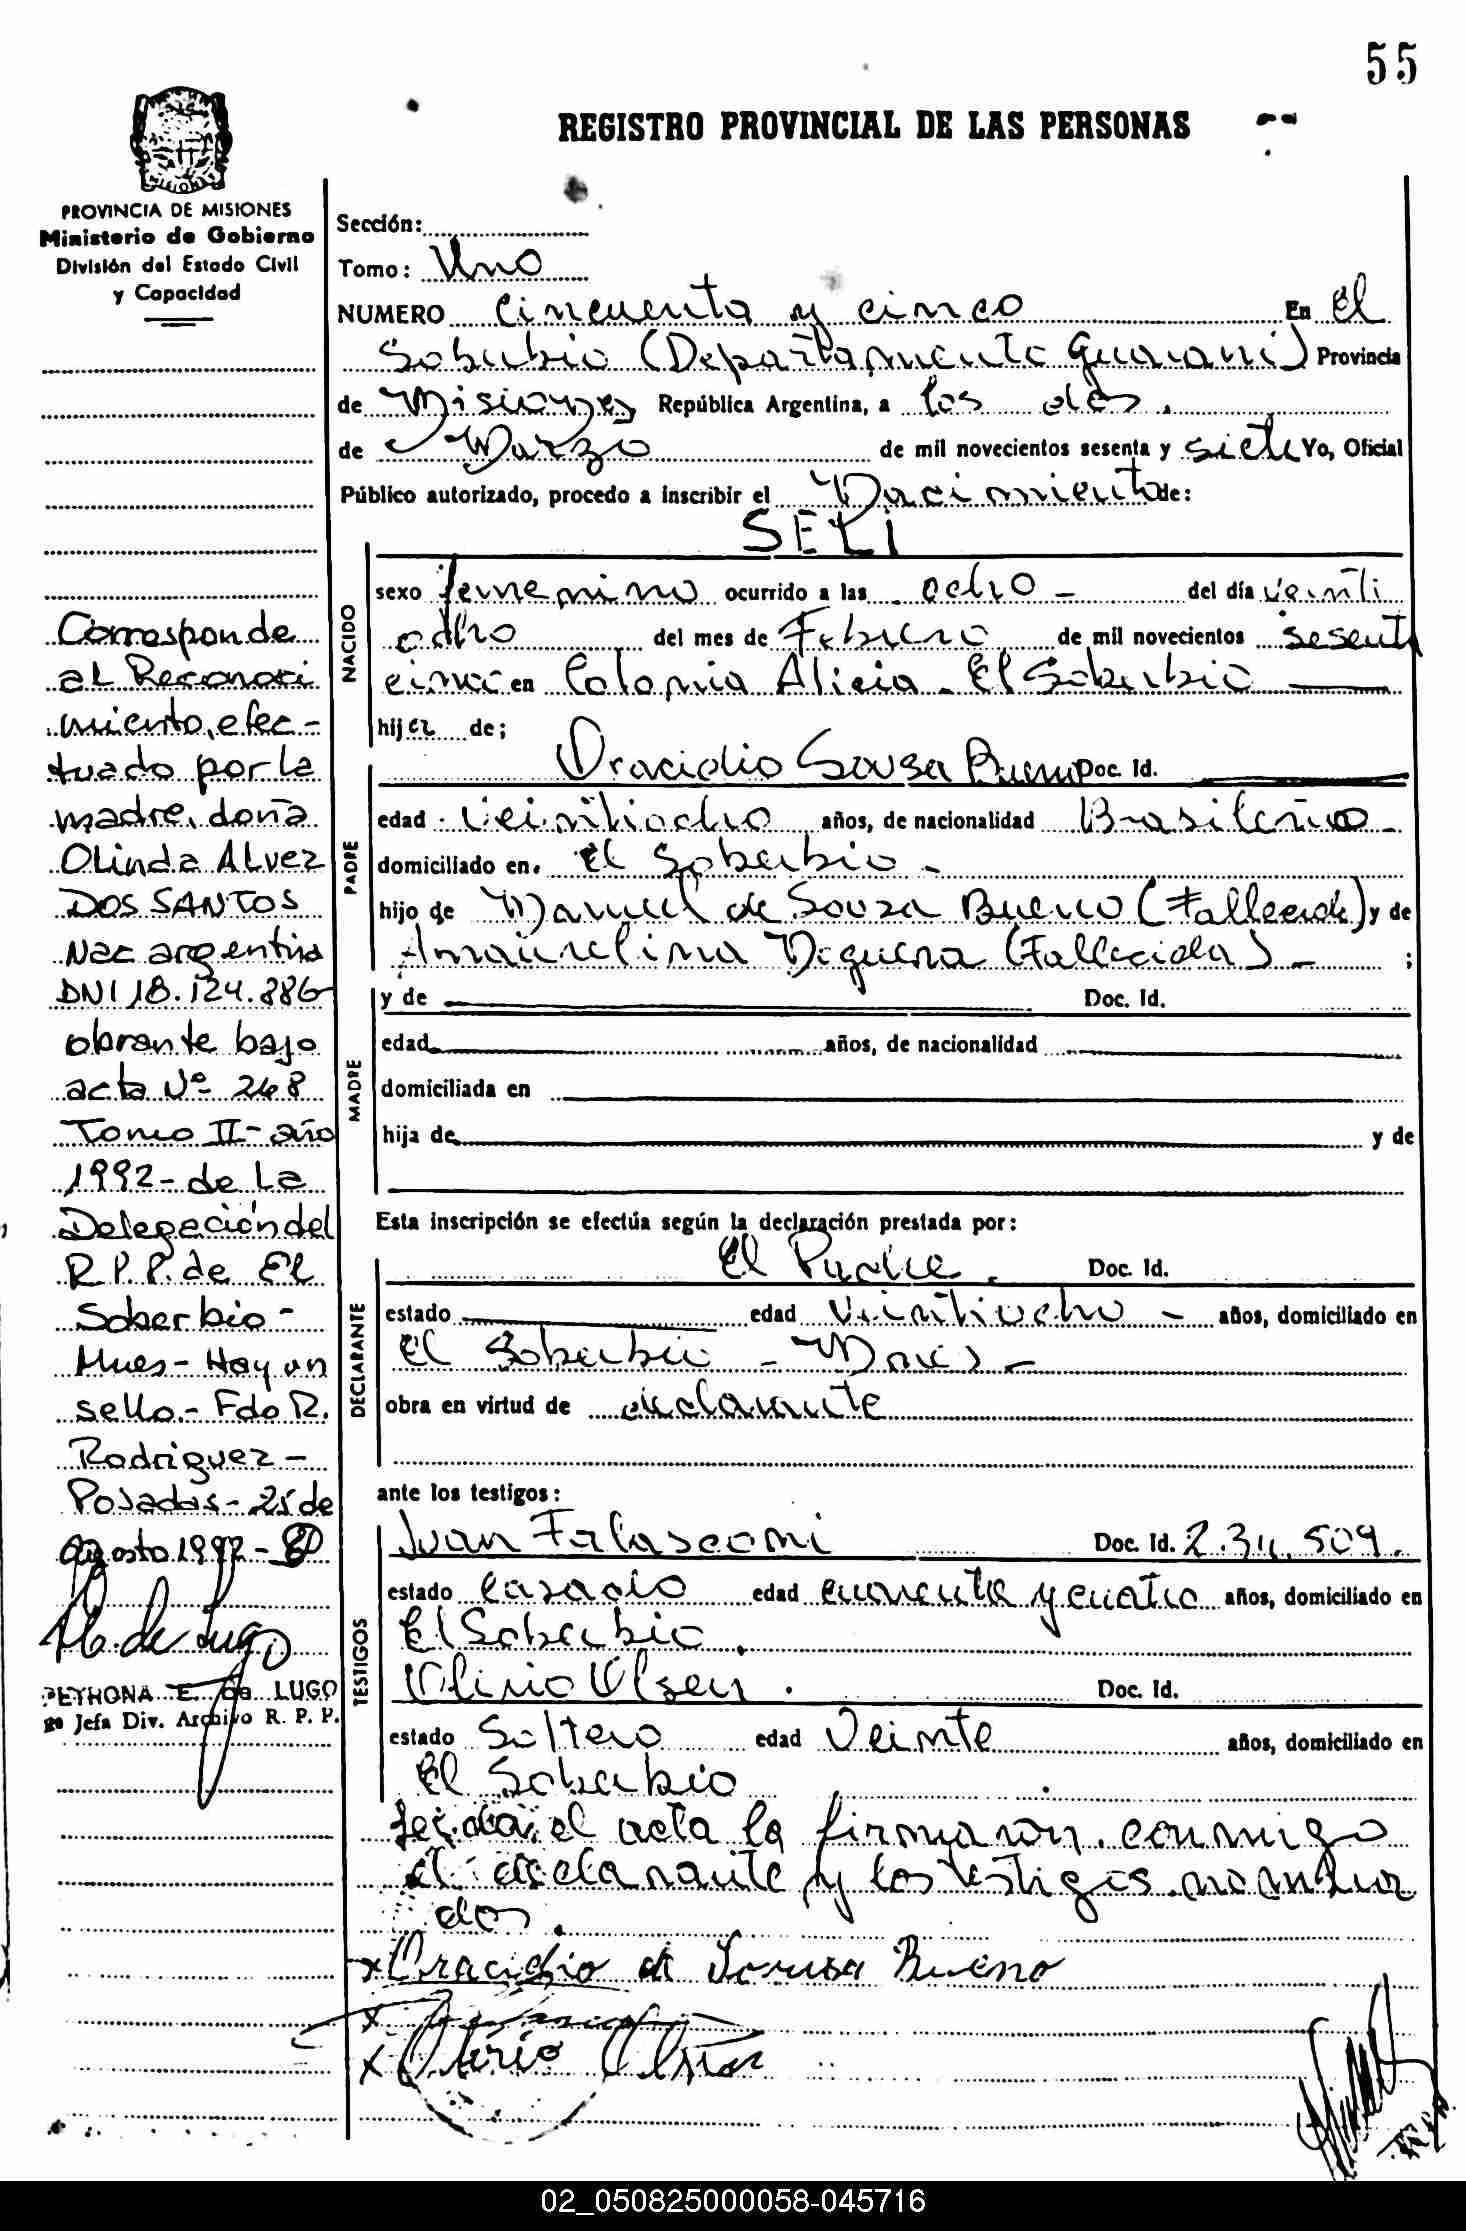 55
REGISTRO PROVINCIAL DE LAS PERSONAS
PROVINCIA DE MISIONES
Ministerio de Gobierno
División del Estado Civil
y Capacidad
Corresponde
al Reconoci
miento, efec-
tuado por la
madre, doña
Olinda ALvez
DOS SANTOS
Nac argentina
DNI 18.124.886
obrante bajo
acta Nº 248
Tomo II - año
1992 - de La
Delegación del
R.P.P. de El
Soberbio -
Mnes - Hay un
sello. - Fdo R.
Rodriguez -
Posadas - 25 de
agosto 1992 -
de Lugo
PETRONA E. de LUGO
Jefa Div. Archivo R. P. P.
Sección:
Tomo: Uno
NUMERO Cincuenta y cinco En El
Soberbio (Departamento Guarani) Provincia
de Misiones República Argentina, a los dos.
de Marzo de mil novecientos sesenta y siete Yo, Oficial
Público autorizado, procedo a inscribir el Nacimiento de:
SELI
NACIDO
sexo femenino ocurrido a las ocho - del día veinti
ocho del mes de Febrero de mil novecientos sesenta
cinco en Colonia Alicia - El Soberbio
hija de;
PADRE
Oracidio Sousa Bueno Doc. Id.
edad veintiocho años, de nacionalidad Brasileño -
domiciliado en. El Soberbio -
hijo de Manuel de Souza Bueno (Fallecido) y de
(Fallecida) - ;
MADRE
y de Doc. Id.
edad años, de nacionalidad
domiciliada en
hija de y de
Esta inscripción se efectúa según la declaración prestada por:
DECLARANTE
El Padre. Doc. Id.
estado edad veintiocho - años, domiciliado en
El Soberbio - Mnes -
obra en virtud de declarante
ante los testigos:
TESTIGOS
Juan Falasconi Doc. Id. 2.311.509.
estado casado edad cuarenta y cuatro años, domiciliado en
El Soberbio.
Olirio Olsen. Doc. Id.
estado Soltero edad Veinte años, domiciliado en
El Soberbio
leida el acta la firmaron conmigo
el declarante y los testigos nombra
dos.
x Oracidio de Sousa Bueno
x
x Olirio Olsen
02_050825000058-045716